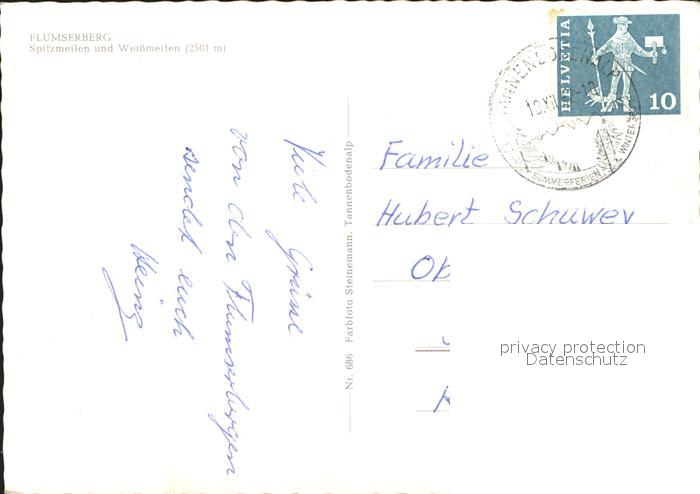 FLUMSERBERG
Spitzmeilen und Weißmeilen (2501 m)
HELVETIA
10
TANNENBODENALP
SOMMERFERIEN
WINTER
Familie
Hubert Schuwer
Ob
privacy protection
Datenschutz
Nr. 686 Farbfoto Steinemann, Tannenbodenalp
Viele Grüsse
von den Flumserbergen
sendet euch
Heinz